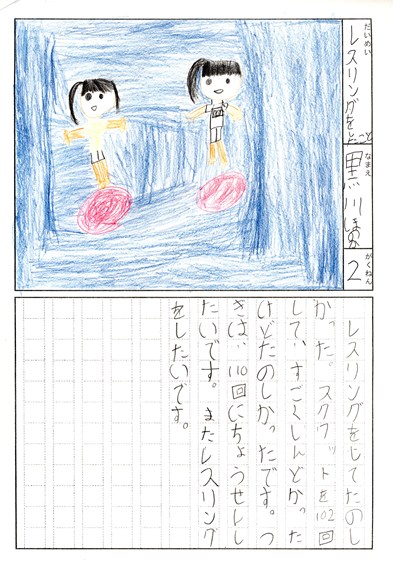 だいめい
レスリングをしたこと
なまえ
黒川ほのか
がくねん
2
レスリングをしてたのし
かった。スクワットを102回
して、すごくしんどかった
けどたのしかったです。つ
ぎは、110回にちょうせんし
たいです。またレスリング
をしたいです。